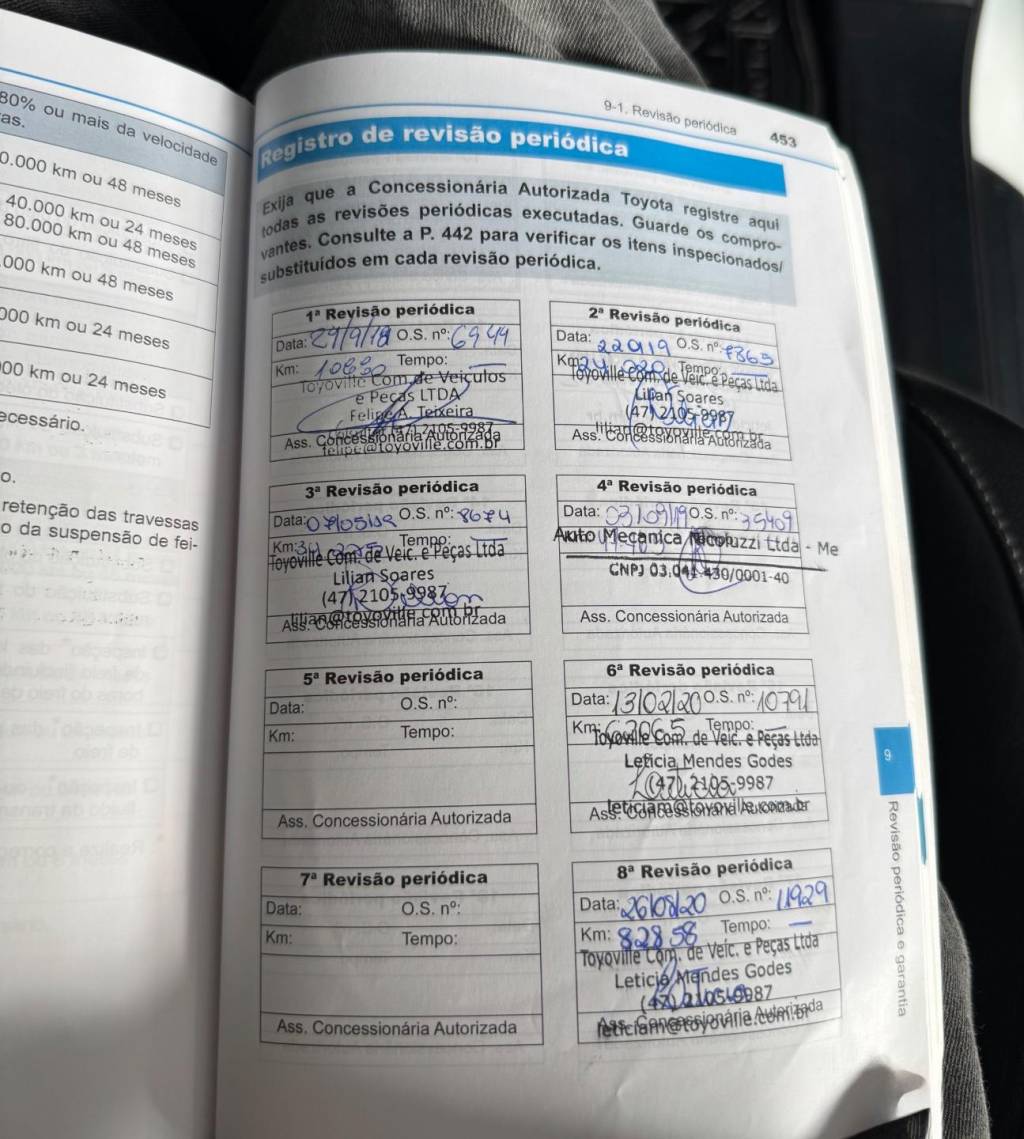 80% ou mais da velocidade
as.
0.000 km ou 48 meses
40.000 km ou 24 meses
80.000 km ou 48 meses
.000 km ou 48 meses
000 km ou 24 meses
000 km ou 24 meses
ecessário.
o.
retenção das travessas
o da suspensão de fei-
9-1. Revisão periódica 453
Registro de revisão periódica
Exija que a Concessionária Autorizada Toyota registre aqui
todas as revisões periódicas executadas. Guarde os compro-
vantes. Consulte a P. 442 para verificar os itens inspecionados/
substituídos em cada revisão periódica.
1ª Revisão periódica
Data: 29/9/18 O.S. nº: 6944
Km: 10690 Tempo:
Toyoville Com. de Veículos
e Peças LTDA
Felipe A. Teixeira
(47) 2105-9987
Ass. Concessionária Autorizada
felipe@toyoville.com.br
2ª Revisão periódica
Data: O.S. nº: 7865
Km: Tempo:
Toyoville Com. de Veic. e Peças Ltda
Lilian Soares
(47) 2105-9987
lilian@toyoville.com.br
Ass. Concessionária Autorizada
3ª Revisão periódica
Data: O.S. nº: 8674
Km: Tempo:
Toyoville Com. de Veic. e Peças Ltda
Lilian Soares
(47) 2105-9987
lilian@toyoville.com.br
Ass. Concessionária Autorizada
4ª Revisão periódica
Data: 03/09/19 O.S. nº: 35409
Auto Mecanica Nicoluzzi Ltda - Me
CNPJ 03.041.430/0001-40
Ass. Concessionária Autorizada
5ª Revisão periódica
Data: O.S. nº:
Km: Tempo:
Ass. Concessionária Autorizada
6ª Revisão periódica
Data: 13/02/20 O.S. nº: 10791
Km: 67065 Tempo:
Toyoville Com. de Veic. e Peças Ltda
Leticia Mendes Godes
(47) 2105-9987
leticiam@toyoville.com.br
Ass. Concessionária Autorizada
7ª Revisão periódica
Data: O.S. nº:
Km: Tempo:
Ass. Concessionária Autorizada
8ª Revisão periódica
Data: 26/08/20 O.S. nº: 11929
Km: 82858 Tempo:
Toyoville Com. de Veic. e Peças Ltda
Leticia Mendes Godes
(47) 2105-9987
Ass. Concessionária Autorizada
leticiam@toyoville.com.br
9
Revisão periódica e garantia